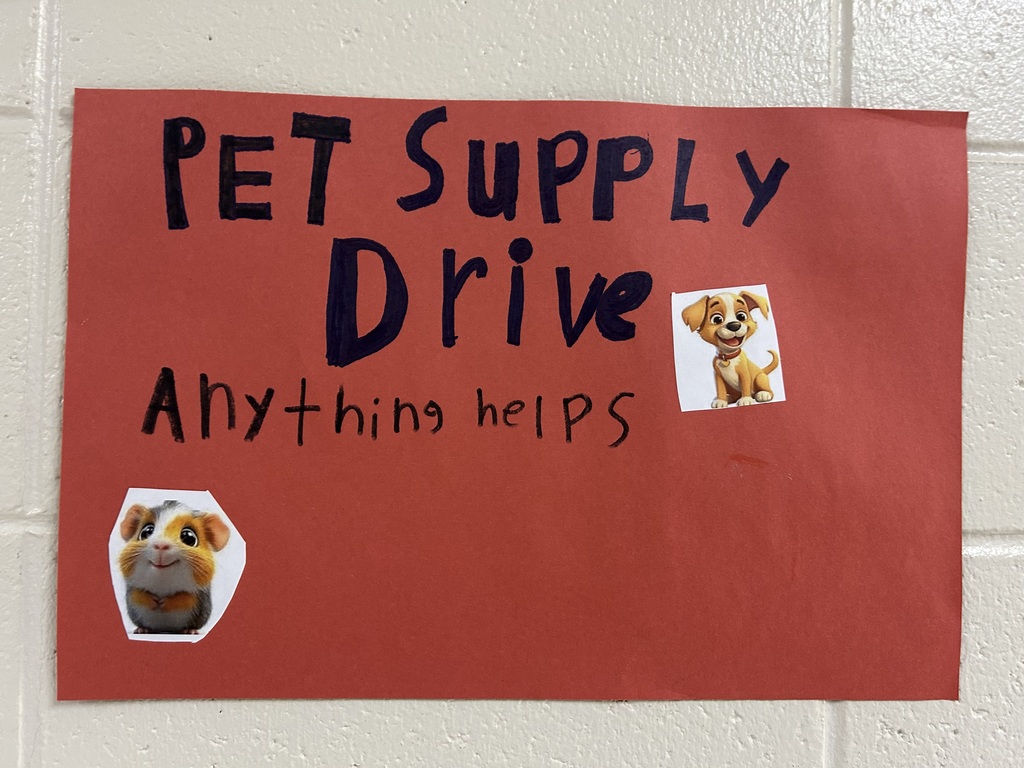 PET SUPPLY
Drive
Anything helps